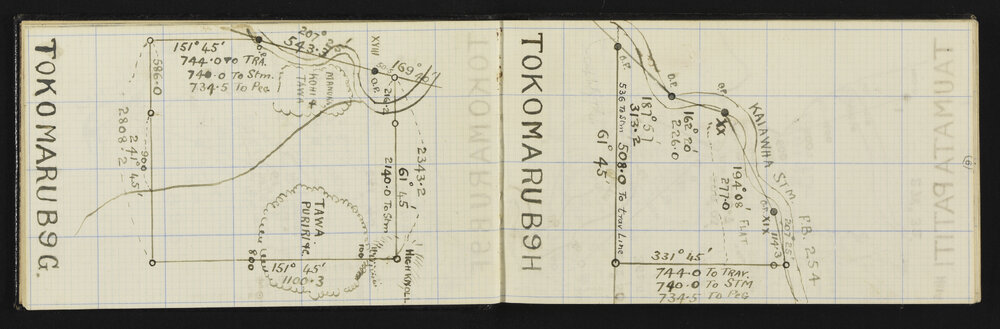 TOKOMARU B9G.
151° 45'
744.0 To TRA.
740.0 To Stm.
734.5 To Peg
586.0
900
241° 45'
2808.2
207° 25'
543.3
O.P.
MANUKA
KOHI &
TAWA
XVIII
O.P.
169°
216.2
2343.2'
61° 45'
2140.0 To Stm
TAWA
PURIRI &c
HIGH KNOLL
100
800
151° 45'
1100.3
TOKOMARU B9H
O.P.
O.P.
O.P.
XX
536 To Stm 508.0 To trav Line
61° 45'
187° 51'
313.2
162° 20'
226.0
KAIAWHA STM.
194° 08'
277.0
FLAT
O.P. XIX
207° 25'
114.3
P.B. 254
331° 45'
744.0 To TRAV.
740.0 To STM
734.5 To Peg